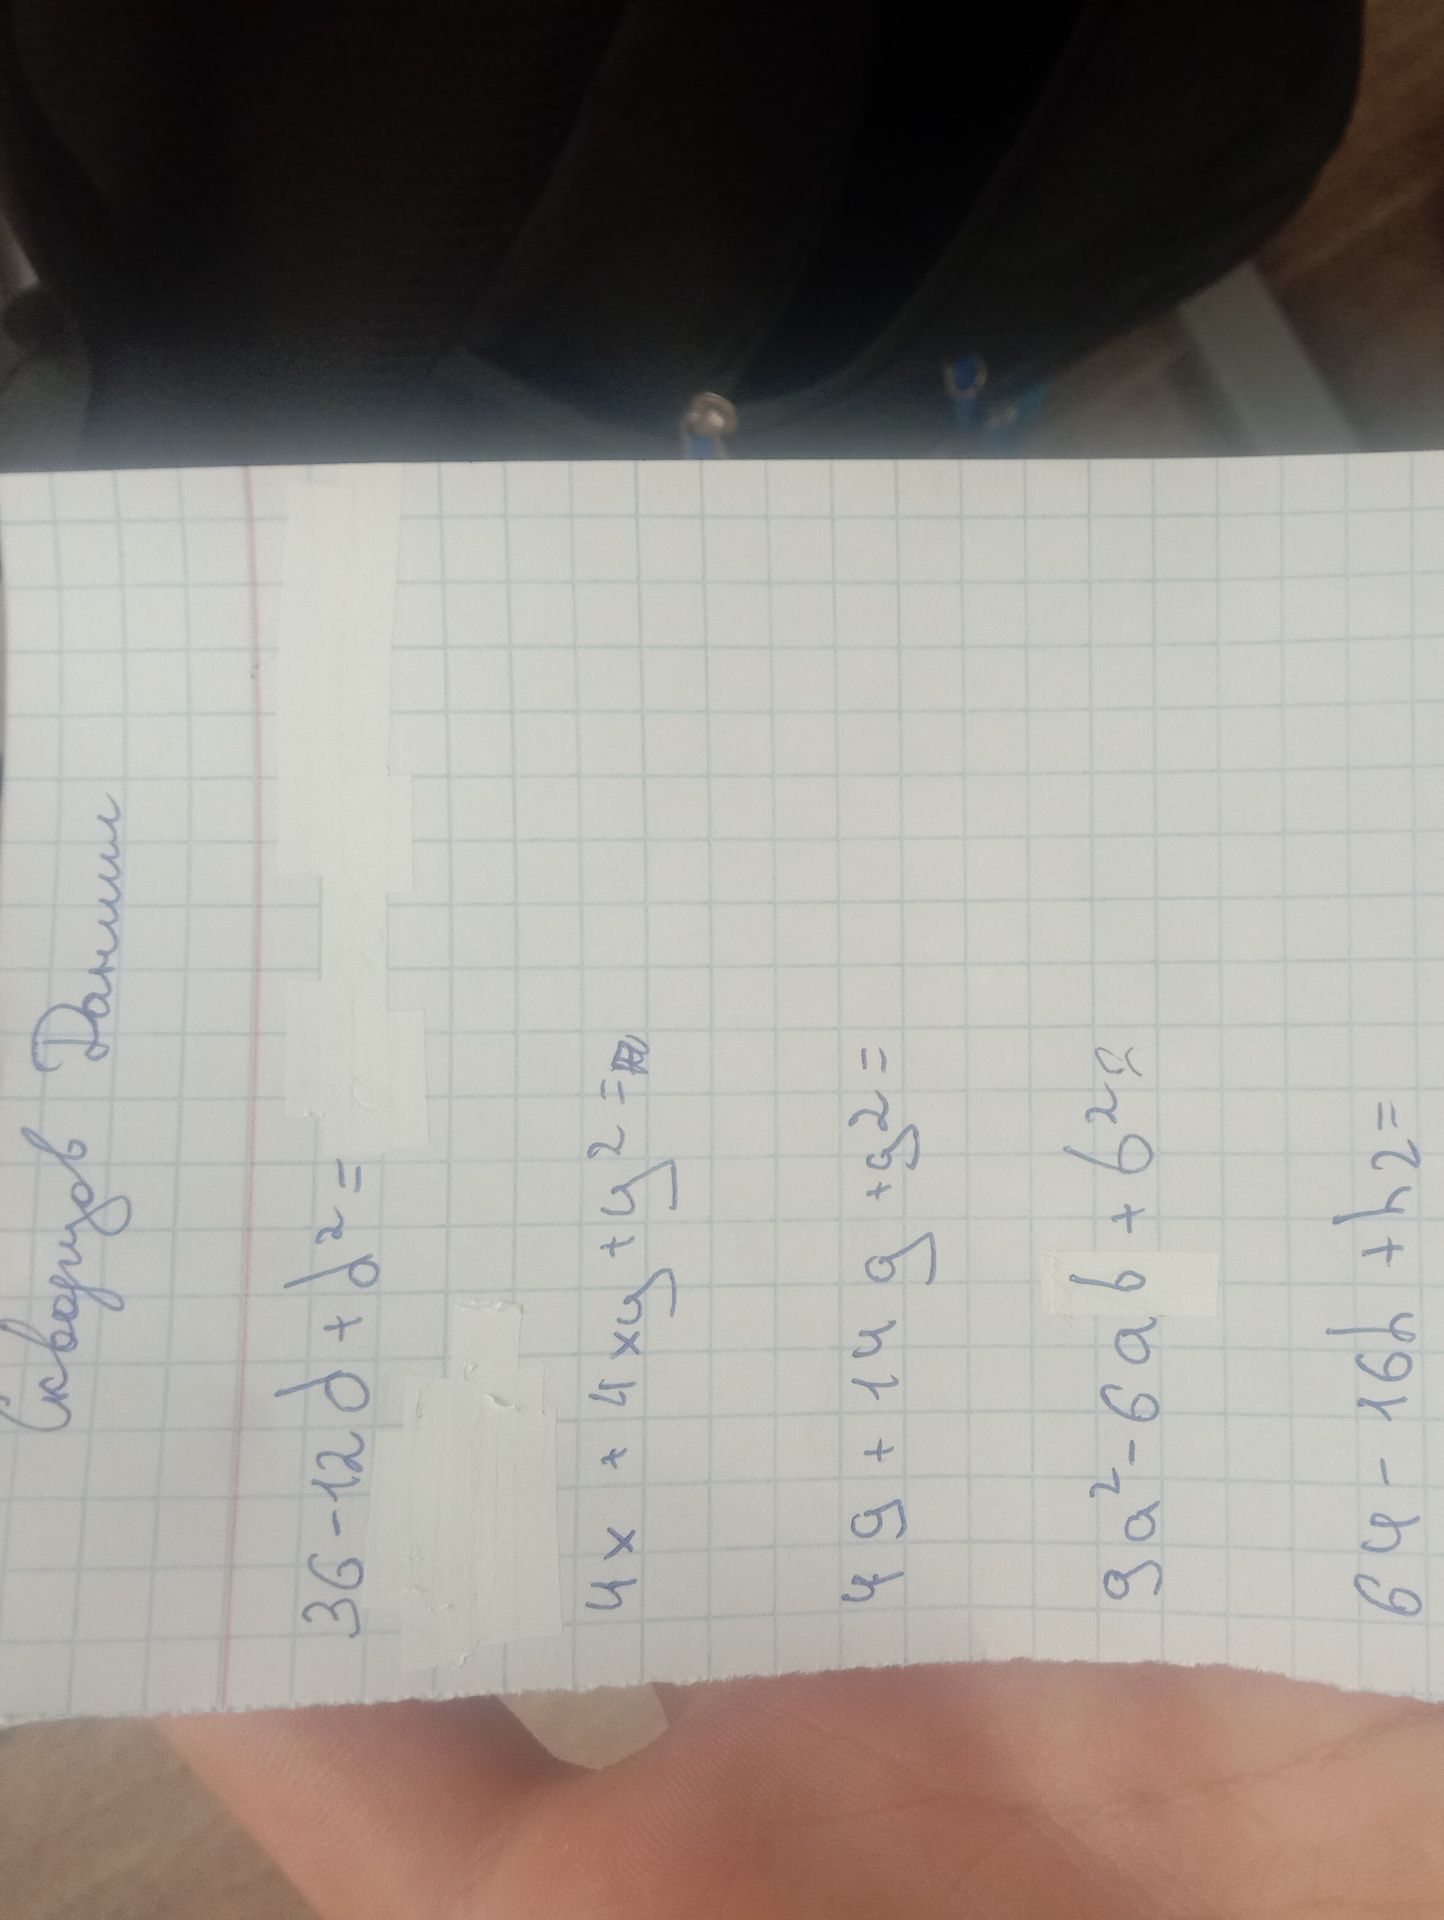 Скворцов Даниил
36-12d+d²=
4x + 4xy+y²=
49+14g+g2=
9a²-6ab+b²=
64-16h+h2=